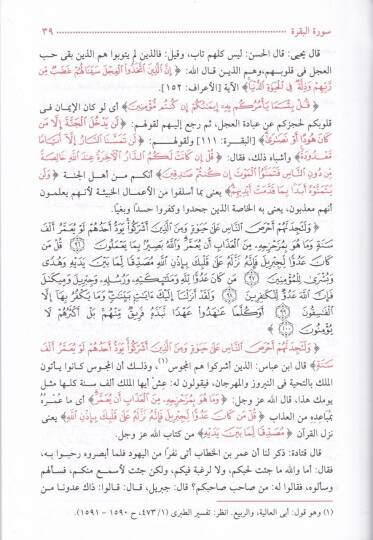 سورة البقرة ٣٩
قال يحيى: قال الحسن: ليس كلهم تاب، وقيل: فالذين لم يتوبوا هم الذين بقي حب
العجل في قلوبهم، وهم الذين قال الله: ﴿ إِنَّ الَّذِينَ اتَّخَذُوا الْعِجْلَ سَيَنَالُهُمْ غَضَبٌ مِّن
رَّبِّهِمْ وَذِلَّةٌ فِي الْحَيَاةِ الدُّنْيَا ﴾ الآية [الأعراف: ١٥٢].
﴿ قُلْ بِئْسَمَا يَأْمُرُكُم بِهِ إِيمَانُكُمْ إِن كُنتُم مُّؤْمِنِينَ ﴾ أى لو كان الإيمان فى
قلوبكم لحجزكم عن عبادة العجل، ثم رجع إليهم لقولهم: ﴿ لَن يَدْخُلَ الْجَنَّةَ إِلَّا مَن
كَانَ هُودًا أَوْ نَصَارَى ﴾ [البقرة: ١١١] ولقولهم: ﴿ لَن تَمَسَّنَا النَّارُ إِلَّا أَيَّامًا
مَّعْدُودَةً ﴾ وأشباه ذلك، فقال: ﴿ قُلْ إِن كَانَتْ لَكُمُ الدَّارُ الْآخِرَةُ عِندَ اللَّهِ خَالِصَةً
مِّن دُونِ النَّاسِ فَتَمَنَّوُا الْمَوْتَ إِن كُنتُمْ صَادِقِينَ ﴾ أنكم من أهل الجنة ﴿ وَلَن
يَتَمَنَّوْهُ أَبَدًا بِمَا قَدَّمَتْ أَيْدِيهِمْ ﴾ يعنى بما أسلفوا من الأعمال الخبيثة لأنهم يعلمون
أنهم معذبون، يعنى به الخاصة الذين جحدوا وكفروا حسدًا وبغيًا.
﴿ وَلَتَجِدَنَّهُمْ أَحْرَصَ النَّاسِ عَلَى حَيَاةٍ وَمِنَ الَّذِينَ أَشْرَكُوا يَوَدُّ أَحَدُهُمْ لَوْ يُعَمَّرُ أَلْفَ
سَنَةٍ وَمَا هُوَ بِمُزَحْزِحِهِ مِنَ الْعَذَابِ أَن يُعَمَّرَ وَاللَّهُ بَصِيرٌ بِمَا يَعْمَلُونَ ﴿٩٦﴾ قُلْ مَن
كَانَ عَدُوًّا لِّجِبْرِيلَ فَإِنَّهُ نَزَّلَهُ عَلَى قَلْبِكَ بِإِذْنِ اللَّهِ مُصَدِّقًا لِّمَا بَيْنَ يَدَيْهِ وَهُدًى
وَبُشْرَى لِلْمُؤْمِنِينَ ﴿٩٧﴾ مَن كَانَ عَدُوًّا لِّلَّهِ وَمَلَائِكَتِهِ وَرُسُلِهِ وَجِبْرِيلَ وَمِيكَالَ
فَإِنَّ اللَّهَ عَدُوٌّ لِّلْكَافِرِينَ ﴿٩٨﴾ وَلَقَدْ أَنزَلْنَا إِلَيْكَ آيَاتٍ بَيِّنَاتٍ وَمَا يَكْفُرُ بِهَا إِلَّا
الْفَاسِقُونَ ﴿٩٩﴾ أَوَكُلَّمَا عَاهَدُوا عَهْدًا نَّبَذَهُ فَرِيقٌ مِّنْهُم بَلْ أَكْثَرُهُمْ لَا
يُؤْمِنُونَ ﴿١٠٠﴾ ﴾
﴿ وَلَتَجِدَنَّهُمْ أَحْرَصَ النَّاسِ عَلَى حَيَاةٍ وَمِنَ الَّذِينَ أَشْرَكُوا يَوَدُّ أَحَدُهُمْ لَوْ يُعَمَّرُ أَلْفَ
سَنَةٍ ﴾ قال ابن عباس: الذين أشركوا هم المجوس(١)، وذلك أن المجوس كانوا يأتون
الملك بالتحية فى النيروز والمهرجان، فيقولون له: عِش أيها الملك ألف سنة كلها مثل
يومك هذا، قال الله عز وجل: ﴿ وَمَا هُوَ بِمُزَحْزِحِهِ مِنَ الْعَذَابِ أَن يُعَمَّرَ ﴾ أى ما عُمْرُهُ
بمباعِدِهِ من العذاب ﴿ قُلْ مَن كَانَ عَدُوًّا لِّجِبْرِيلَ فَإِنَّهُ نَزَّلَهُ عَلَى قَلْبِكَ بِإِذْنِ اللَّهِ ﴾ يعنى
نزل القرآن ﴿ مُصَدِّقًا لِّمَا بَيْنَ يَدَيْهِ ﴾ من كتاب الله عز وجل.
قال قتادة: ذكر لنا أن عمر بن الخطاب أتى نفرًا من اليهود فلما أبصروه رحبوا به،
فقال: أما والله ما جئت لحبكم، ولا لرغبة فيكم، ولكن جئت لأسمع منكم، فسألهم
وسألوه، فقالوا له: من صاحب صاحبكم؟ قال: جبريل، قالوا: ذاك عدونا من
(١) وهو قول: أبى العالية، والربيع. انظر: تفسير الطبرى (٤٧٣/١، ح ١٥٩٠ - ١٥٩١).